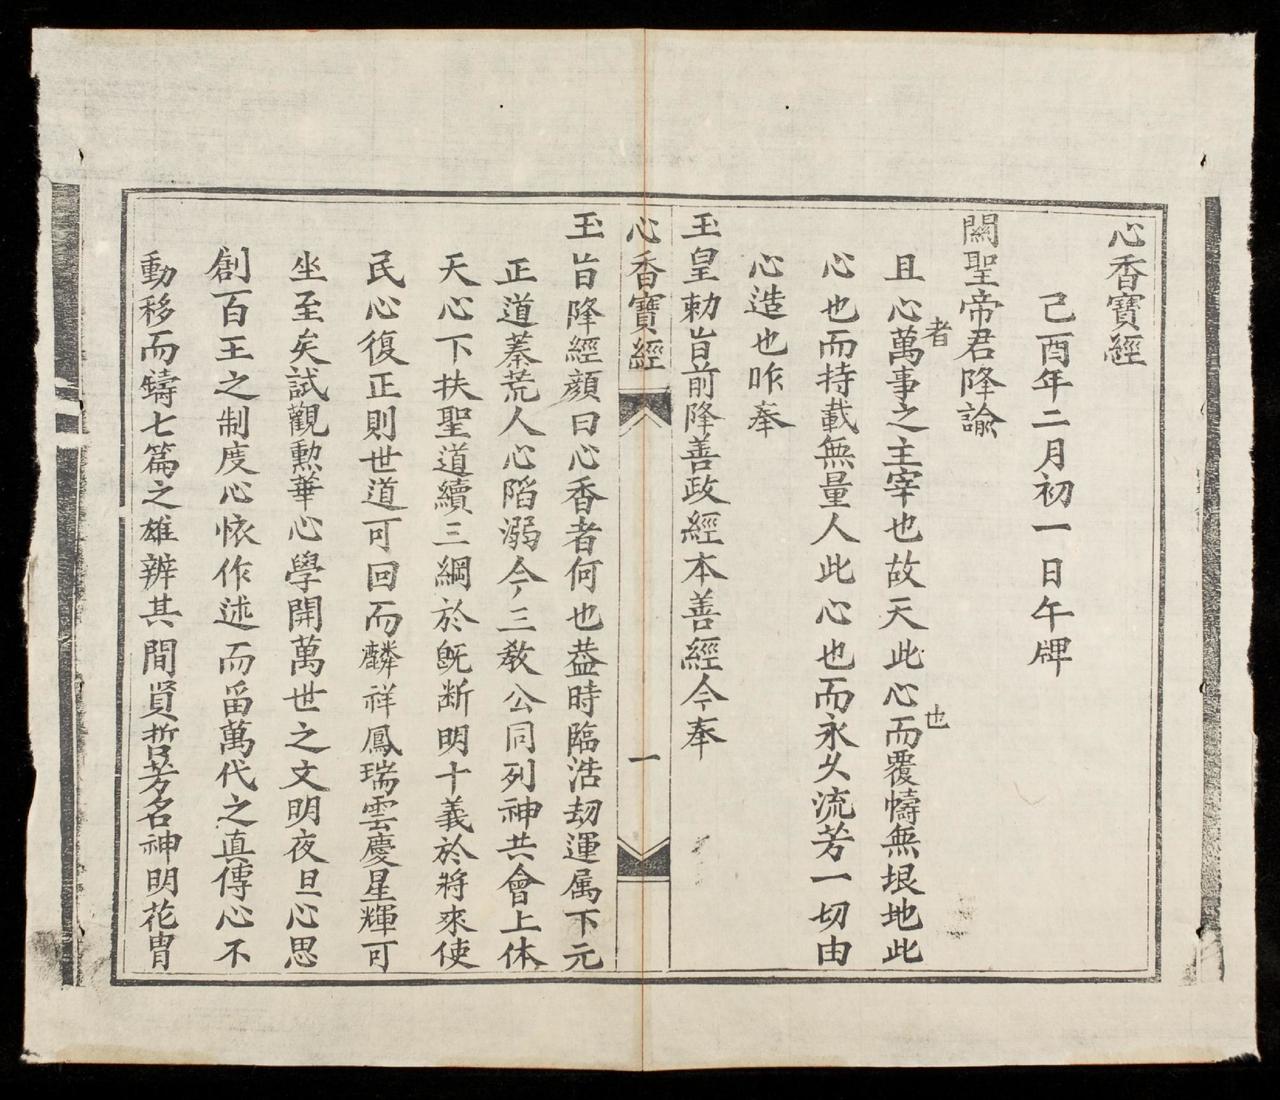 心香寶經
己酉年二月初一日午牌
關聖帝君降諭
且心者萬事之主宰也故天此心也而覆幬無垠地此
心也而持載無量人此心也而永久流芳一切由
心造也昨奉
玉皇勅旨前降善政經本善經今奉
心香寶經 一
玉旨降經顏曰心香者何也葢時臨浩刧運属下元
正道蓁荒人心陷溺今三教公同列神共會上体
天心下扶聖道續三綱於旣断明十義於將來使
民心復正則世道可回而麟祥鳳瑞雲慶星輝可
坐至矣試觀勲華心學開萬世之文明夜旦心思
創百王之制度心恡作述而畱萬代之真傳心不
動移而鑄七篇之雄辨其間賢哲芳名神明花胄